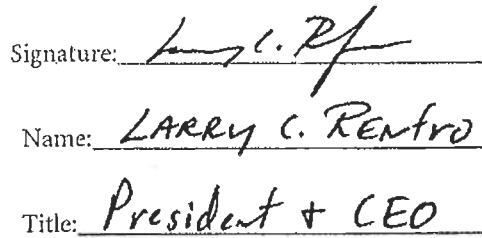 Signature: Larry C. R
Name: LARRY C. RENfro
Title: President + CEO